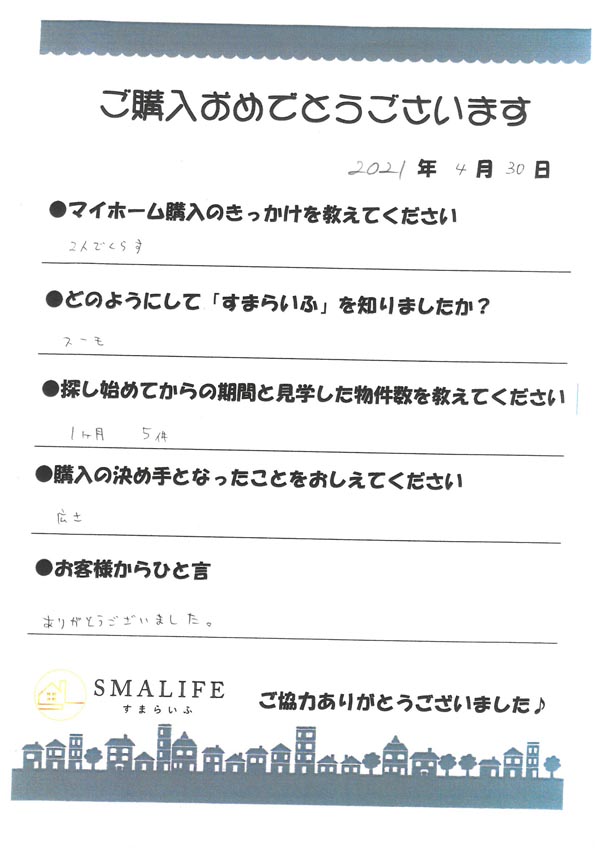 ご購入おめでとうございます
2021年4月30日
●マイホーム購入のきっかけを教えてください
2人でくらす
●どのようにして「すまらいふ」を知りましたか？
スーモ
●探し始めてからの期間と見学した物件数を教えてください
1ヶ月 5件
●購入の決め手となったことをおしえてください
広さ
●お客様からひと言
ありがとうございました。
SMALIFE
すまらいふ
ご協力ありがとうございました♪